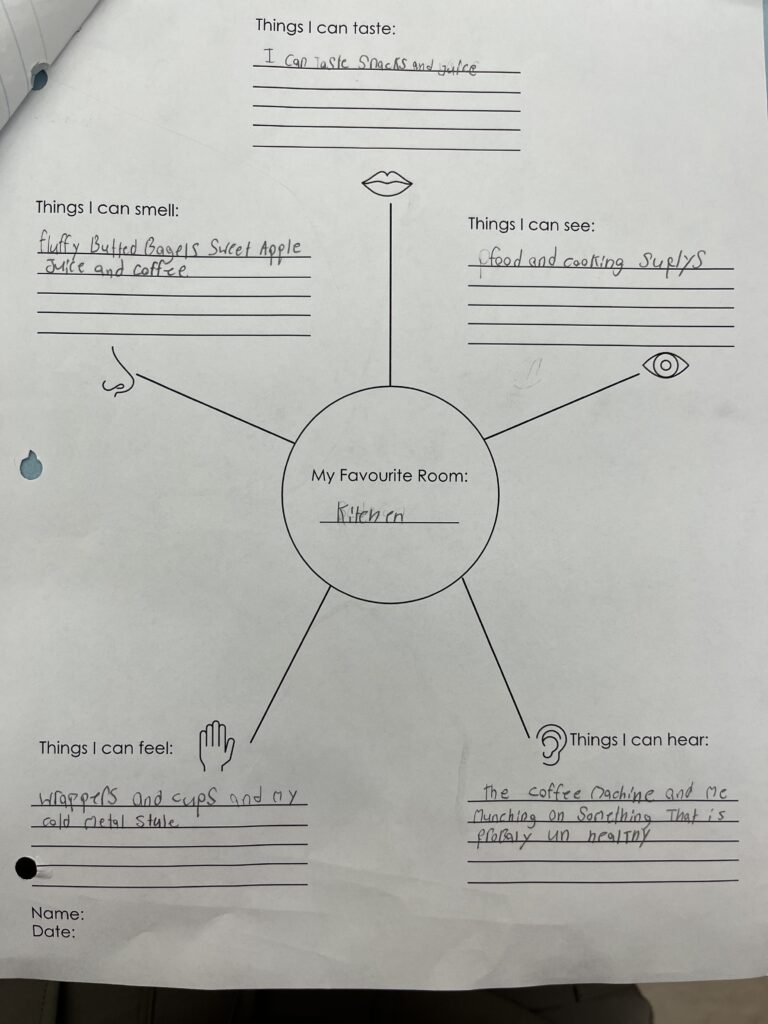 Things I can taste:
I can taste snacks and juice
Things I can smell:
fluffy Butted Bagels Sweet Apple
Juice and coffee
Things I can see:
food and cooking Suplys
My Favourite Room:
Kitchen
Things I can feel:
wrappers and cups and my
cold metal
Things I can hear:
the coffee machine and me
Munching on Something That is
probaly un healthy
Name:
Date: